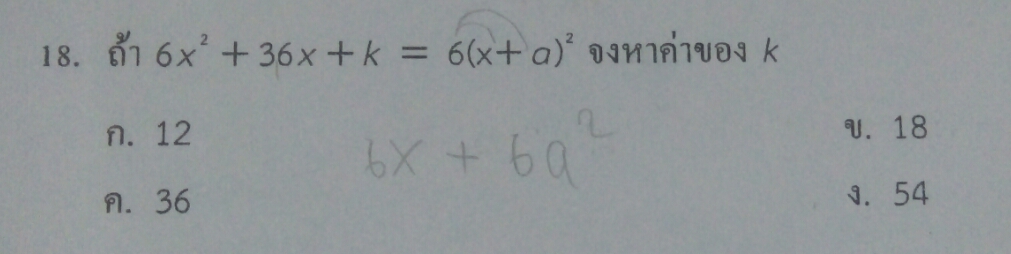 18. ถ้า 6x² + 36x + k = 6(x + a)² จงหาค่าของ k
ก. 12 ข. 18
6x + 6a²
ค. 36 ง. 54